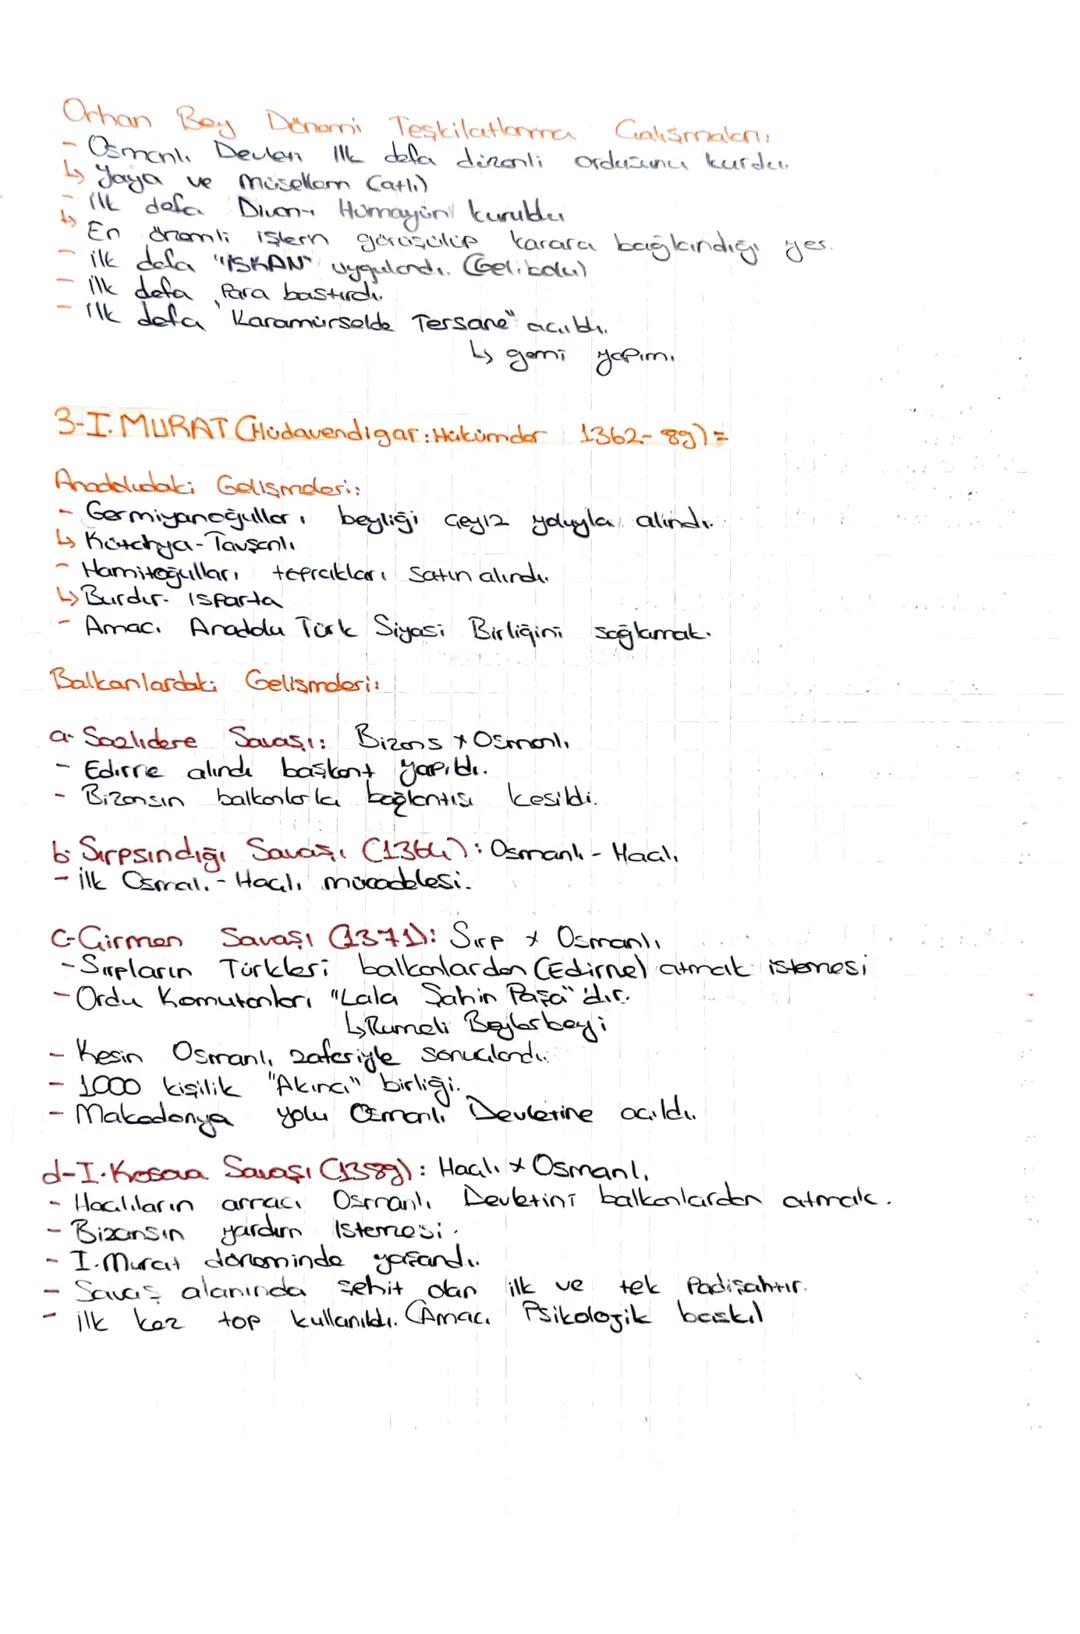 Orhan Bey Dönemi Teşkilatlanma Çalışmaları:
- Osmanlı Devleti ilk defa düzenli ordusunu kurdu.
↳ Yaya ve müsellem (atlı)
- İlk defa Divan-ı Hümayün kuruldu
↳ En önemli işlerin görüşülüp karara bağlandığı yer.
- ilk defa "İSKAN" uygulandı. (Gelibolu)
- ilk defa Para bastırdı.
- ilk defa "Karamürselde Tersane" açıldı.
↳ gemi yapım.
3-I. MURAT (Hüdavendigar: Hükümdar 1362-89)=
Anadoludaki Gelişmeleri:
- Germiyanoğulları beyliği çeyiz yoluyla alındı.
↳ Kütahya-Tavşanlı
- Hamitoğulları toprakları satın alındı.
↳ Burdur- Isparta
- Amacı Anadolu Türk Siyasi Birliğini sağlamak.
Balkanlardaki Gelişmeleri:
a- Sazlıdere Savaşı: Bizans x Osmanlı
- Edirne alındı başkent yapıldı.
- Bizansın balkanlarla bağlantısı kesildi.
b- Sırpsındığı Savaşı (1364): Osmanlı - Haçlı
- İlk Osmalı - Haçlı mücadelesi.
c-Çirmen Savaşı (1371): Sırp x Osmanlı
- Sırpların Türkleri balkanlardan (Edirne) atmak istemesi
- Ordu Komutanları "Lala Şahin Paşa" dır.
↳ Rumeli Beylerbeyi
- Kesin Osmanlı zaferiyle sonuçlandı.
- 1000 kişilik "Akıncı" birliği.
- Makedonya yolu Osmanlı Devletine açıldı.
d-I. Kosova Savaşı (1389): Haçlı x Osmanlı
- Haçlıların amacı Osmanlı Devletini balkanlardan atmak.
- Bizansın yardım istemesi.
- I. Murat döneminde yaşandı.
- Savaş alanında şehit olan ilk ve tek Padişahtır.
- ilk kez top kullanıldı. (Amacı Psikolojik baskı)